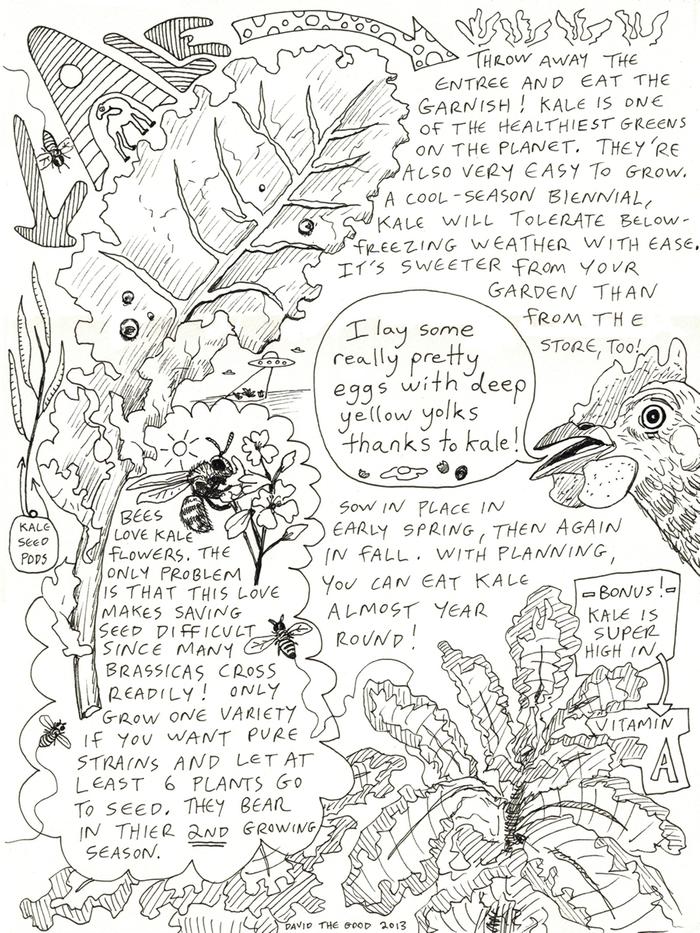 KALE
THROW AWAY THE
ENTREE AND EAT THE
GARNISH! KALE IS ONE
OF THE HEALTHIEST GREENS
ON THE PLANET. THEY'RE
ALSO VERY EASY TO GROW.
A COOL-SEASON BIENNIAL,
KALE WILL TOLERATE BELOW-
FREEZING WEATHER WITH EASE.
IT'S SWEETER FROM YOUR
GARDEN THAN
FROM THE
STORE, TOO!
I lay some
really pretty
eggs with deep
yellow yolks
thanks to kale!
KALE
SEED
PODS
BEES
LOVE KALE
FLOWERS. THE
ONLY PROBLEM
IS THAT THIS LOVE
MAKES SAVING
SEED DIFFICULT
SINCE MANY
BRASSICAS CROSS
READILY! ONLY
GROW ONE VARIETY
IF YOU WANT PURE
STRAINS AND LET AT
LEAST 6 PLANTS GO
TO SEED. THEY BEAR
IN THIER 2ND GROWING
SEASON.
SOW IN PLACE IN
EARLY SPRING, THEN AGAIN
IN FALL. WITH PLANNING,
YOU CAN EAT KALE
ALMOST YEAR
ROUND!
-BONUS!-
KALE IS
SUPER
HIGH IN
VITAMIN
A
DAVID THE GOOD 2013